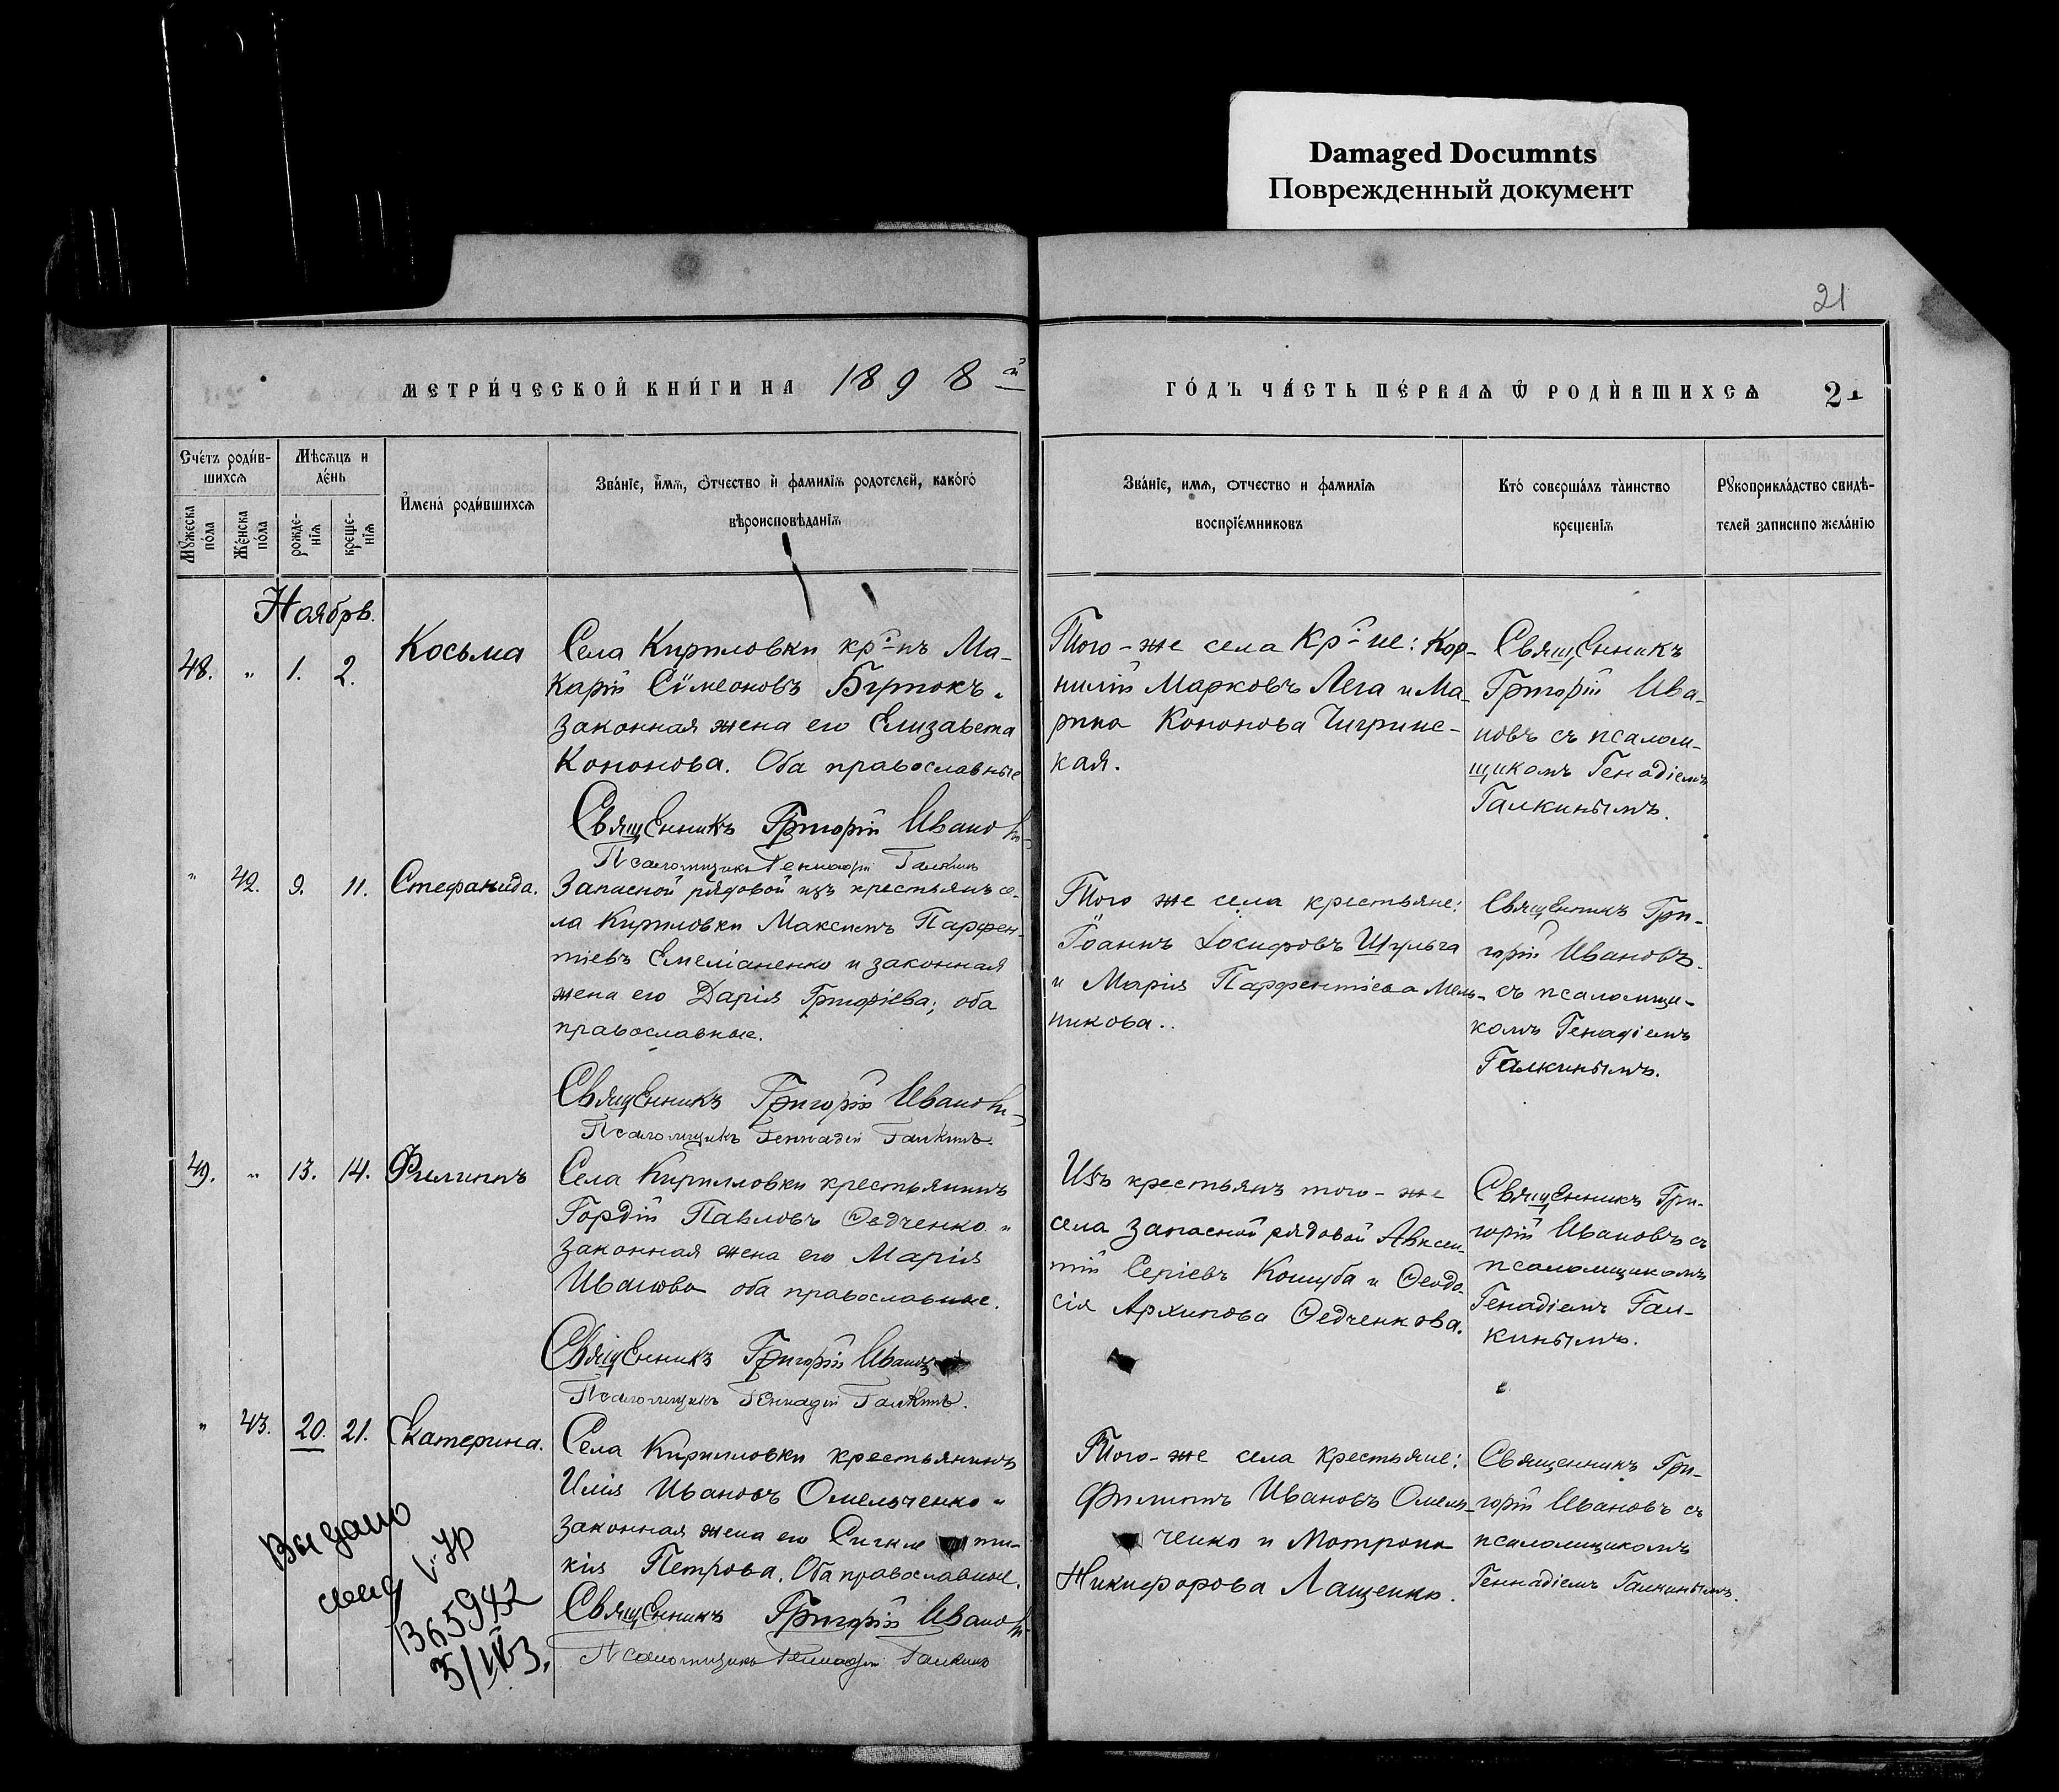 Damaged Documnts
Поврежденный документ
21
МЕТРИ́ЧЕСКОЙ КНИ́ГИ НА 1898 й
ГО́ДЪ ЧА́СТЬ ПЕ́РВАѦ Ѿ РОДИ́ВШИХСѦ 21
Сче́тъ роди́в-
шихсѧ
Мꙋ́жеска
по́ла
Же́нска
по́ла
Мѣ́сѧцъ и
де́нь
рожде-
нїѧ
креще-
нїѧ
И҆мена̀ роди́вшихсѧ
Зва́нїе, и҆́мѧ, ѻ҆́тчество и҆ фамилїѧ родотелей, како́гѡ
вѣроисповѣ́данїѧ
Зва́нїе, имѧ, отчество и фамилїѧ
воспрїе́мниковъ
Кто́ соверша́лъ та́инство
крещенїѧ
Рꙋкоприкла́дство свидѣ́-
телей записипо жела́нїю
Ноябрь.
48. " 1. 2.
Косьма
Села Кириловки кр-нъ Ма-
карій Сѵмеоновъ Бутокъ и
законная жена его Елизавета
Кононова. Оба православные
Священникъ Григорій Ивановъ
Псаломщикъ Геннадій Галкинъ
Того-же села Кр-не: Кор-
нилій Марковъ Лега и Ма-
рина Кононова Чигринс-
кая.
Священникъ
Григорій Ива-
новъ съ псалом-
щикомъ Генадіемъ
Галкинымъ.
" 42. 9. 11.
Стефанида.
Запасной рядовой изъ крестьянъ се-
ла Кириловки Максимъ Парфен-
тіевъ Емеліаненко и законная
жена его Дарія Григоріева; оба
православные.
Священникъ Григорій Ивановъ
Псаломщикъ Геннадій Галкинъ.
Того же села крестьяне:
Іоаннъ Іосифовъ Шульга
и Марія Парфентіева Мель-
никова..
Священникъ Гри-
горій Ивановъ
съ псаломщи-
комъ Генадіемъ
Галкинымъ.
49. " 13. 14.
Филиппъ
Села Кирилловки крестьянинъ
Гордій Павловъ Ѳедченко и
законная жена его Марія
Иванова оба православные.
Священникъ Григорій Ивановъ
Псаломщикъ Геннадій Галкинъ.
Изъ крестьянъ того-же
села запасной рядовой Авксен-
тій Сергіевъ Кошуба и Ѳеодо-
сія Архипова Ѳедченкова.
Священникъ Гри-
горій Ивановъ съ
псаломщикомъ
Генадіемъ Гал-
кинымъ.
" 43. 20. 21.
Екатерина.
Села Кирилловки крестьянинъ
Илія Ивановъ Омельченко и
законная жена его Сигкле ти-
кія Петрова. Оба православные.
Священникъ Григорій Ивановъ
Псаломщикъ Геннадій Галкинъ
Того-же села крестьяне:
Филиппъ Ивановъ Омель-
ченко и Мотрона
Никифорова Лащенко.
Священникъ Гри-
горій Ивановъ съ
псаломщикомъ
Геннадіемъ Галкинымъ.
Выдано
365942